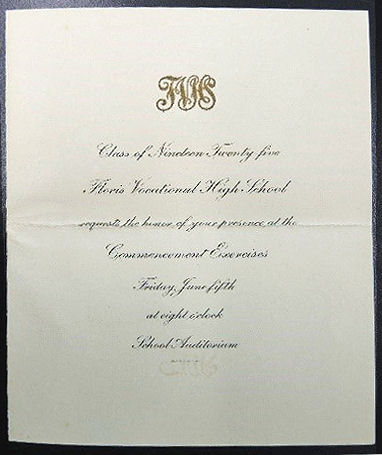 FVHS
Class of Nineteen Twenty five
Floris Vocational High School
requests the honor of your presence at the
Commencement Exercises
Friday, June fifth
at eight o'clock
School Auditorium